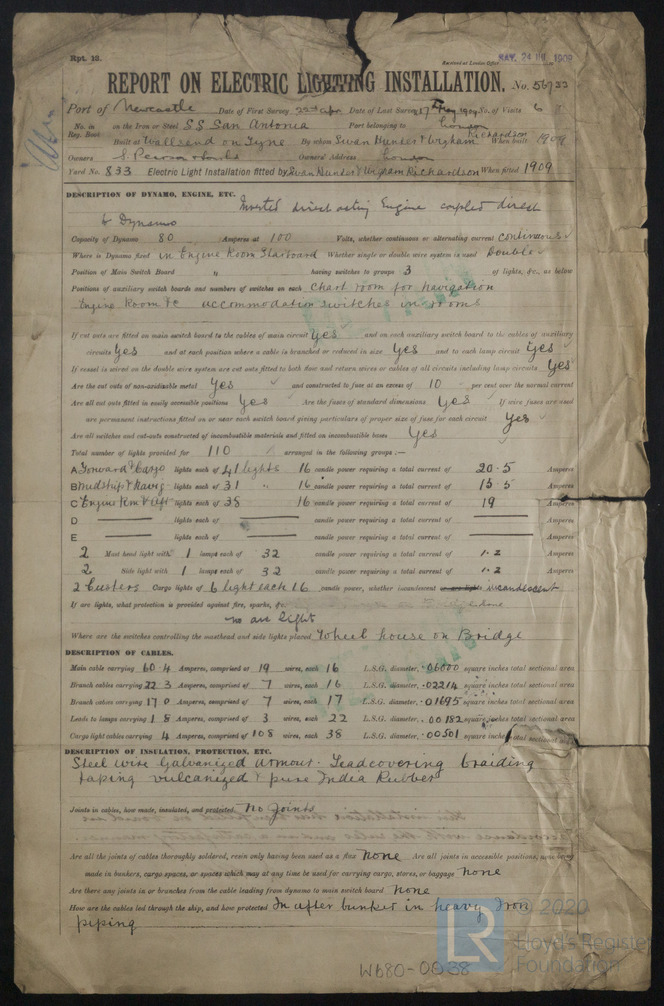 Rpt. 13.
Received at London Office
MAY. 24 1909
REPORT ON ELECTRIC LIGHTING INSTALLATION. No. 56733
Port of Newcastle Date of First Survey 22nd Apr Date of Last Survey 17th May 1909 No. of Visits 6
No. in Reg. Book on the Iron or Steel SS San Antonio Port belonging to London
Built at Wallsend on Tyne By whom Swan Hunter & Wigham Richardson When built 1909
Owners S. Pearson Owners' Address London
Yard No. 833 Electric Light Installation fitted by Swan Hunter & Wigham Richardson When fitted 1909
DESCRIPTION OF DYNAMO, ENGINE, ETC.
Inverted direct acting Engine coupled direct
to Dynamo
Capacity of Dynamo 80 Amperes at 100 Volts, whether continuous or alternating current Continuous
Where is Dynamo fixed in Engine Room Starboard Whether single or double wire system is used Double
Position of Main Switch Board " having switches to groups 3 of lights, &c., as below
Positions of auxiliary switch boards and numbers of switches on each Chart room for navigation
Engine Room &c accommodation switches in rooms
If cut outs are fitted on main switch board to the cables of main circuit Yes and on each auxiliary switch board to the cables of auxiliary
circuits Yes and at each position where a cable is branched or reduced in size Yes and to each lamp circuit Yes
If vessel is wired on the double wire system are cut outs fitted to both flow and return wires or cables of all circuits including lamp circuits Yes
Are the cut outs of non-oxidizable metal Yes and constructed to fuse at an excess of 10 per cent over the normal current
Are all cut outs fitted in easily accessible positions Yes Are the fuses of standard dimensions Yes If wire fuses are used
are permanent instructions fitted on or near each switch board giving particulars of proper size of fuse for each circuit Yes
Are all switches and cut-outs constructed of incombustible materials and fitted on incombustible bases Yes
Total number of lights provided for 110 arranged in the following groups :—
A Forward & Cargo lights each of 41 lights 16 candle power requiring a total current of 20.5 Amperes
B Midships & Navig lights each of 31 " 16 candle power requiring a total current of 15.5 Amperes
C Engine Rm & Aft lights each of 38 16 candle power requiring a total current of 19 Amperes
D — lights each of — candle power requiring a total current of — Amperes
E — lights each of — candle power requiring a total current of — Amperes
2 Mast head light with 1 lamps each of 32 candle power requiring a total current of 1.2 Amperes
2 Side light with 1 lamps each of 32 candle power requiring a total current of 1.2 Amperes
2 Clusters Cargo lights of 6 light each 16 candle power, whether incandescent or arc lights incandescent
If arc lights, what protection is provided against fire, sparks, &c.
no arc light
Where are the switches controlling the masthead and side lights placed Wheel house on Bridge
DESCRIPTION OF CABLES.
Main cable carrying 60.4 Amperes, comprised of 19 wires, each 16 L.S.G. diameter, .06000 square inches total sectional area
Branch cables carrying 22.3 Amperes, comprised of 7 wires, each 16 L.S.G. diameter, .02214 square inches total sectional area
Branch cables carrying 17.0 Amperes, comprised of 7 wires, each 17 L.S.G. diameter, .01695 square inches total sectional area
Leads to lamps carrying 1.8 Amperes, comprised of 3 wires, each 22 L.S.G. diameter, .00182 square inches total sectional area
Cargo light cables carrying 4 Amperes, comprised of 108 wires, each 38 L.S.G. diameter, .00501 square inches total sectional area
DESCRIPTION OF INSULATION, PROTECTION, ETC.
Steel wire Galvanized armour. Leadcovering braiding
taping vulcanized & pure India Rubber
Joints in cables, how made, insulated, and protected No Joints
Are all the joints of cables thoroughly soldered, resin only having been used as a flux None Are all joints in accessible positions, none being
made in bunkers, cargo spaces, or spaces which may at any time be used for carrying cargo, stores, or baggage None
Are there any joints in or branches from the cable leading from dynamo to main switch board None
How are the cables led through the ship, and how protected In after bunker in heavy Iron
piping
© 2020
LR
Lloyd's Register
Foundation
W680-0038